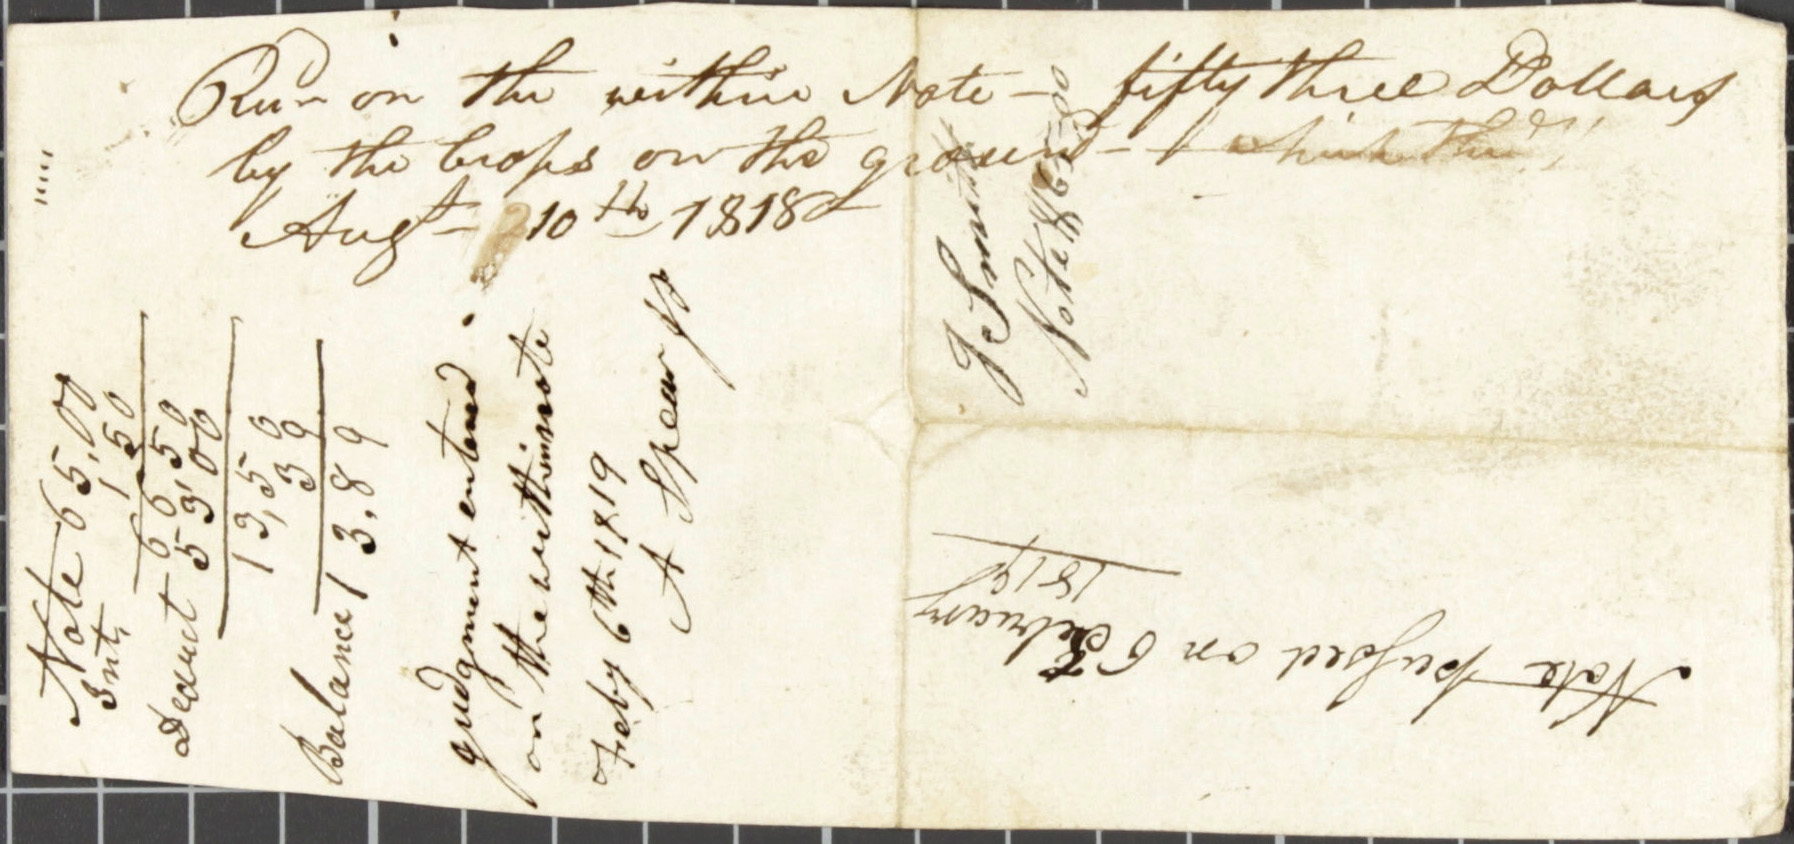 on the within Note — fifty three Dollars
by the Crops on the ground —
Augt — 10th 1818
Note 65,00
Int, 1,50
66 50
Deduct 53,00
13,50
39
Balance 13.89
judgment entered
on the within note
Feby 6th 1819
A Spear JP
J Smith
Note $65.00
Note on 6 February
1819